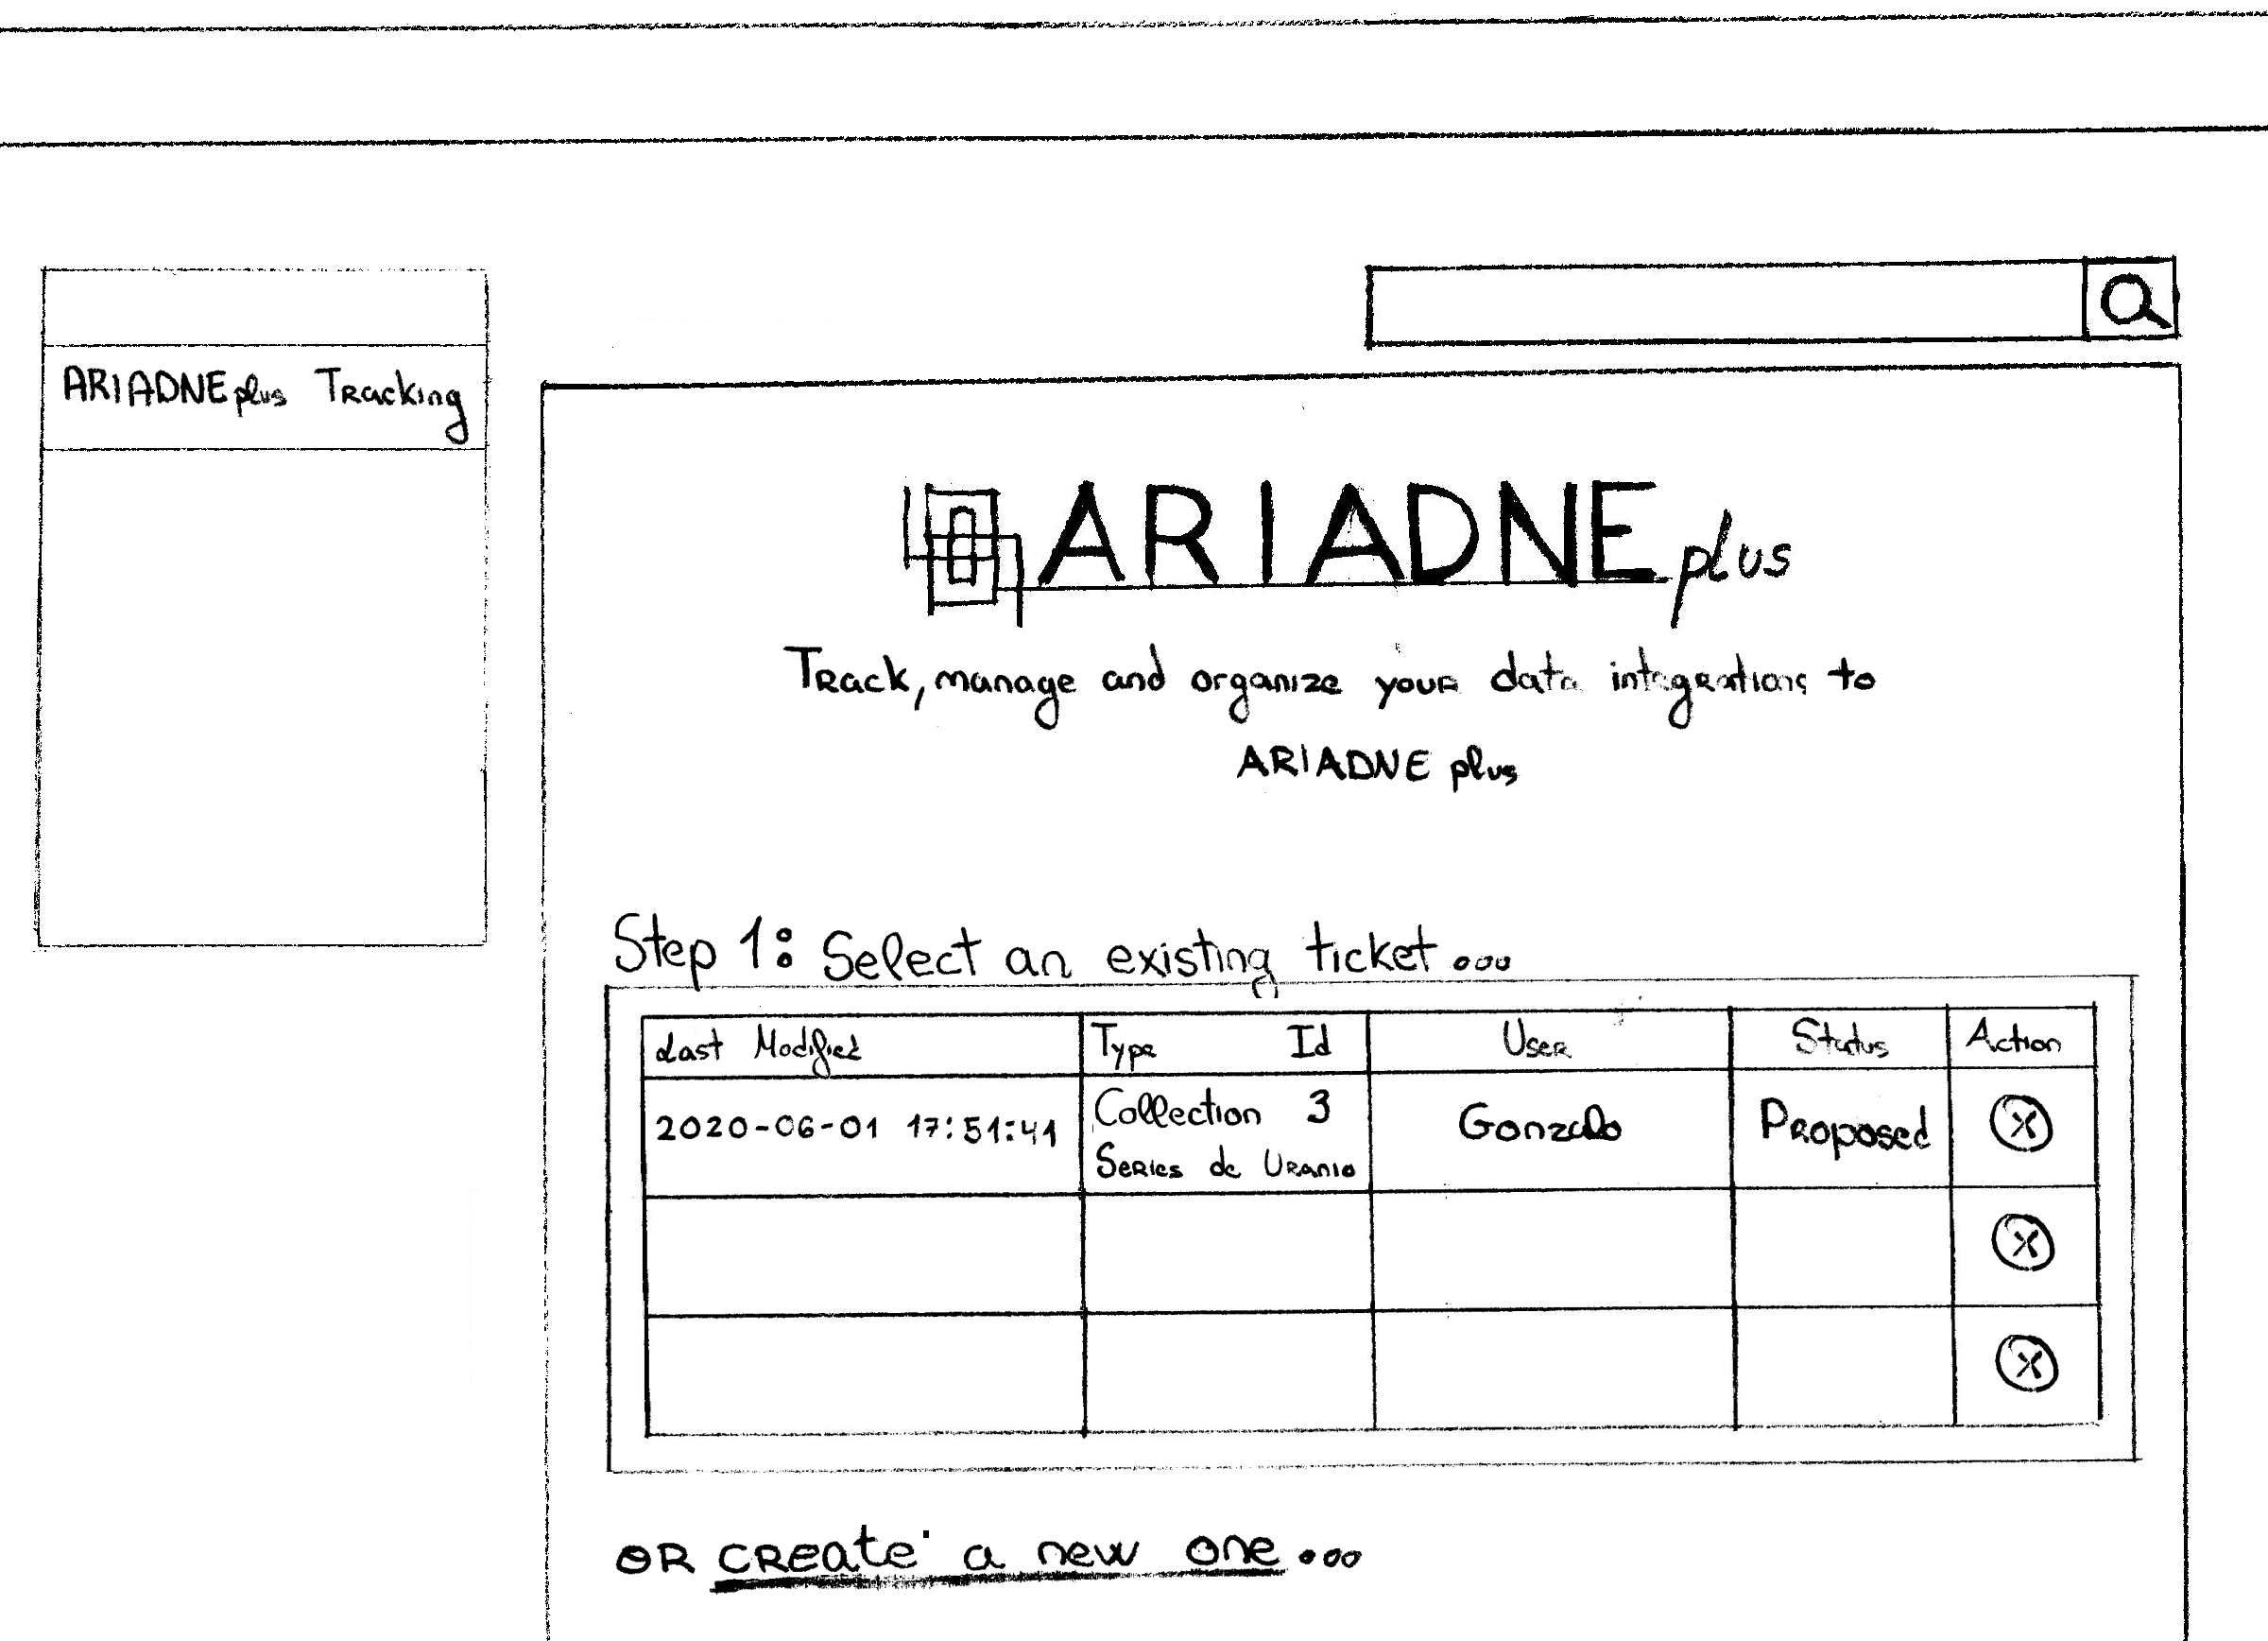 ARIADNE plus Tracking
ARIADNE plus
Track, manage and organize your data integrations to
ARIADNE plus
Step 1: Select an existing ticket...
Last Modified Type Id User Status Action
2020-06-01 17:51:41 Collection 3 Gonzalo Proposed X
Series de Uranio
X
X
OR create a new one...